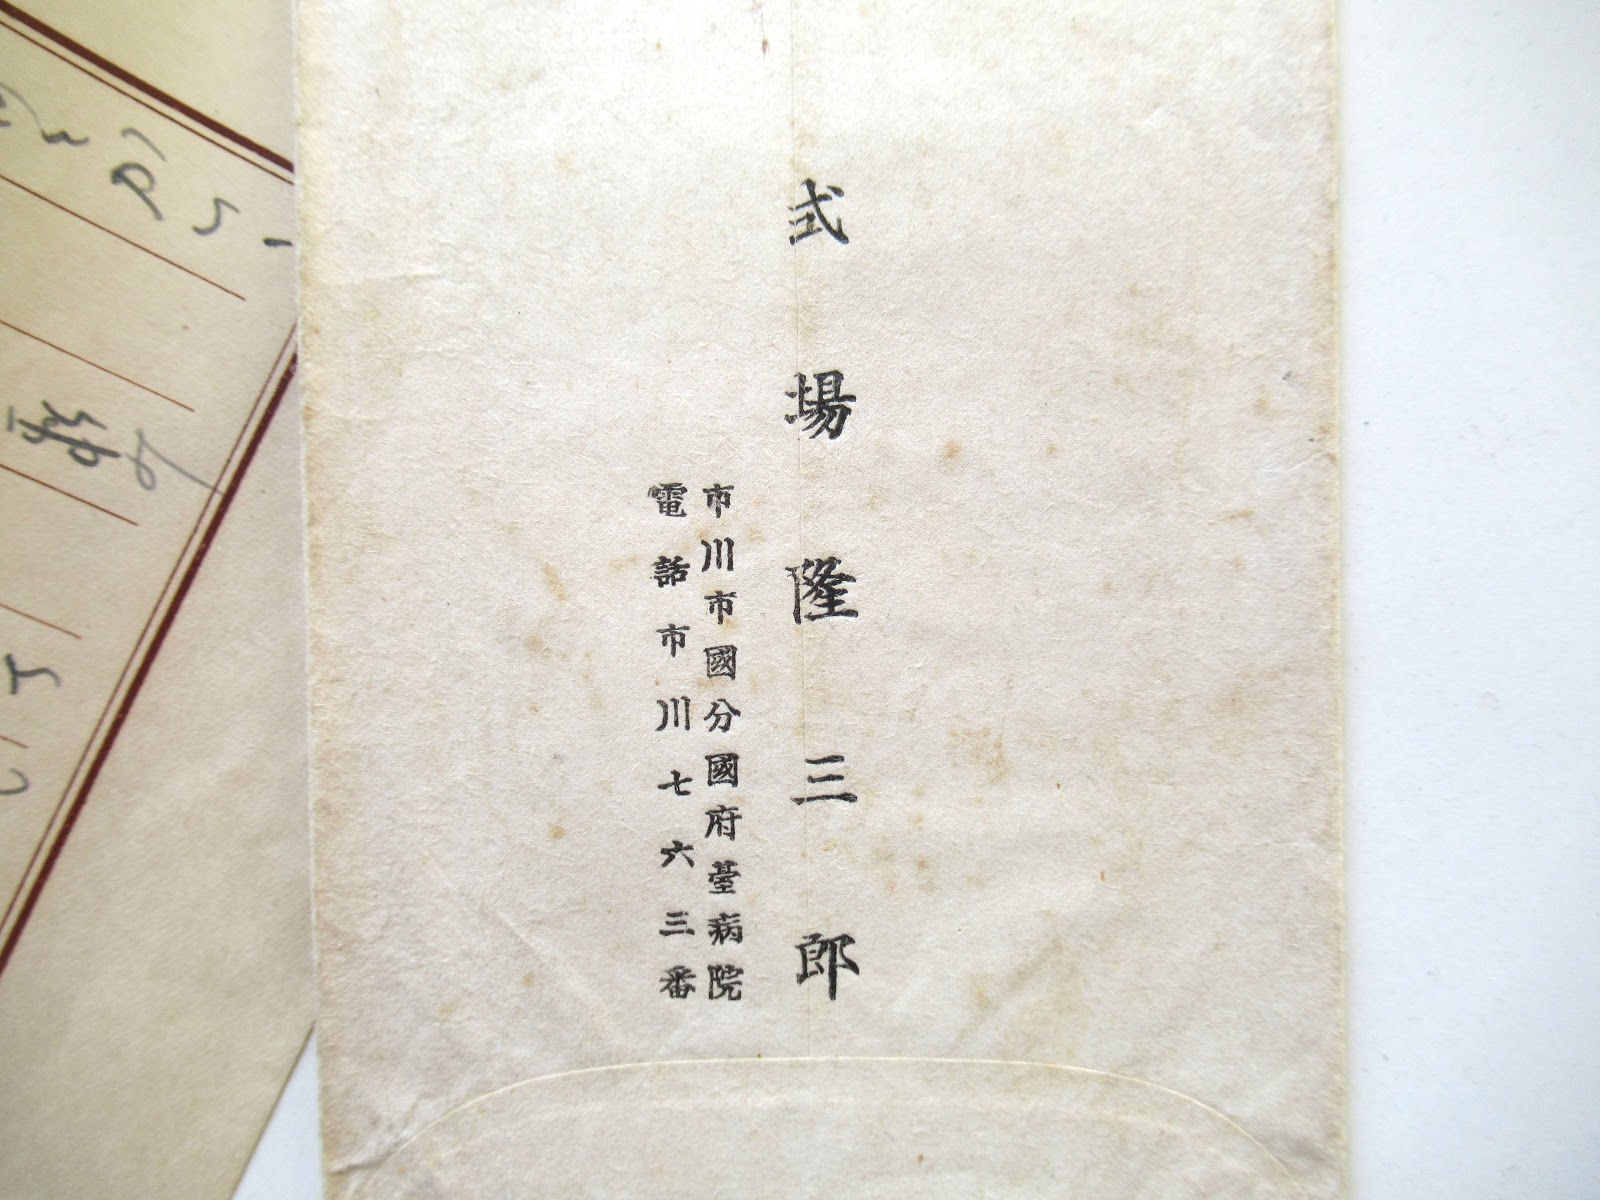 式場隆三郎
市川市國分國府臺病院
電話市川七六三番